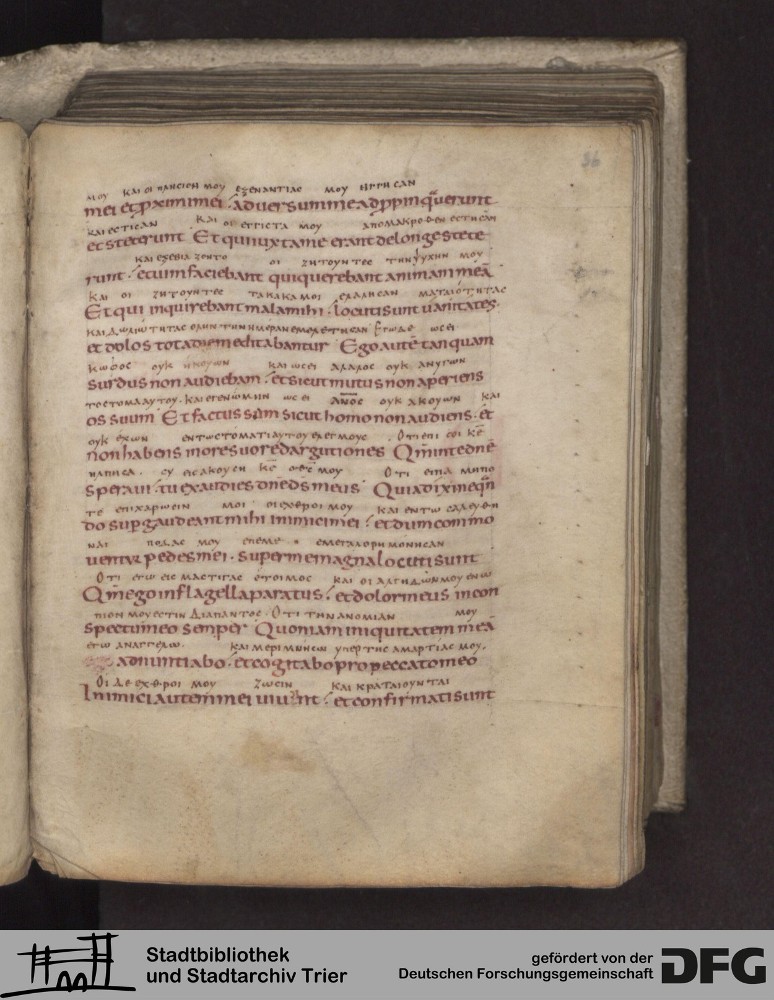 36
μου και οι πλησιον μου εξεναντιας μου ηγγισαν
mei et ꝓximi mei · adversum me adpꝓinq̄uerunt
και εστησαν και οι εγγιστα μου απομακροθεν εστησαν
et steterunt Et qui iuxta me erant de longe stete
και εξεβιαζοντο οι ζητουντες την ψυχην μου
runt · et uim faciebant qui quærebant animam meā
και οι ζητουντες τα κακα μοι ελαλησαν ματαιοτητας
Et qui inquirebant mala mihi · locuti sunt uanitates
και δωλιωτητας ολην την ημεραν εμελετησαν εγω δε ωσει
et dolos tota die meditabantur Ego autē tanquam
κωφος ουκ ηκουων και ωσει αλαλος ουκ ανυγων
surdus non audiebam · et sicut mutus non aperiens
το στομα αυτου · και εγενωμην ωσει ανος ουκ ακουων και
os suum Et factus sum sicut homo non audiens · et
ουκ εχων εν τω στοματι αυτου ελεγμους · Οτι επι σοι κε
non habens in ore suo redargutiones Qm in te dnē
ηλπισα · συ εισακουση κε ο θς μου Οτι ειπα μηπο
speraui · tu exaudies dnē ds meus Quia dixi neqn̄
τε επιχαρωσιν μοι οι εχθροι μου και εν τω σαλευθη
do suꝑgaudeant mihi inimici mei · et dum commo
ναι ποδας μου επ εμε εμεγαλορημονησαν
uentur pedes mei · super me magna locuti sunt
Οτι εγω εις μαστιγας ετοιμος και οι αλγηδων μου ενω
Qm ego in flagella paratus · et dolor meus in con
πιον μου εστιν διαπαντος · Οτι την ανομιαν μου
spectu meo semper Quoniam iniquitatem meā
εγω αναγγελω · και μεριμνησω υπερ της αμαρτιας μου ·
adnuntiabo · et cogitabo pro peccato meo
Οι δε εχθροι μου ζωσιν και κραταιουνται
Inimici autem mei uiuunt · et confirmati sunt
Stadtbibliothek
und Stadtarchiv Trier
gefördert von der
Deutschen Forschungsgemeinschaft
DFG